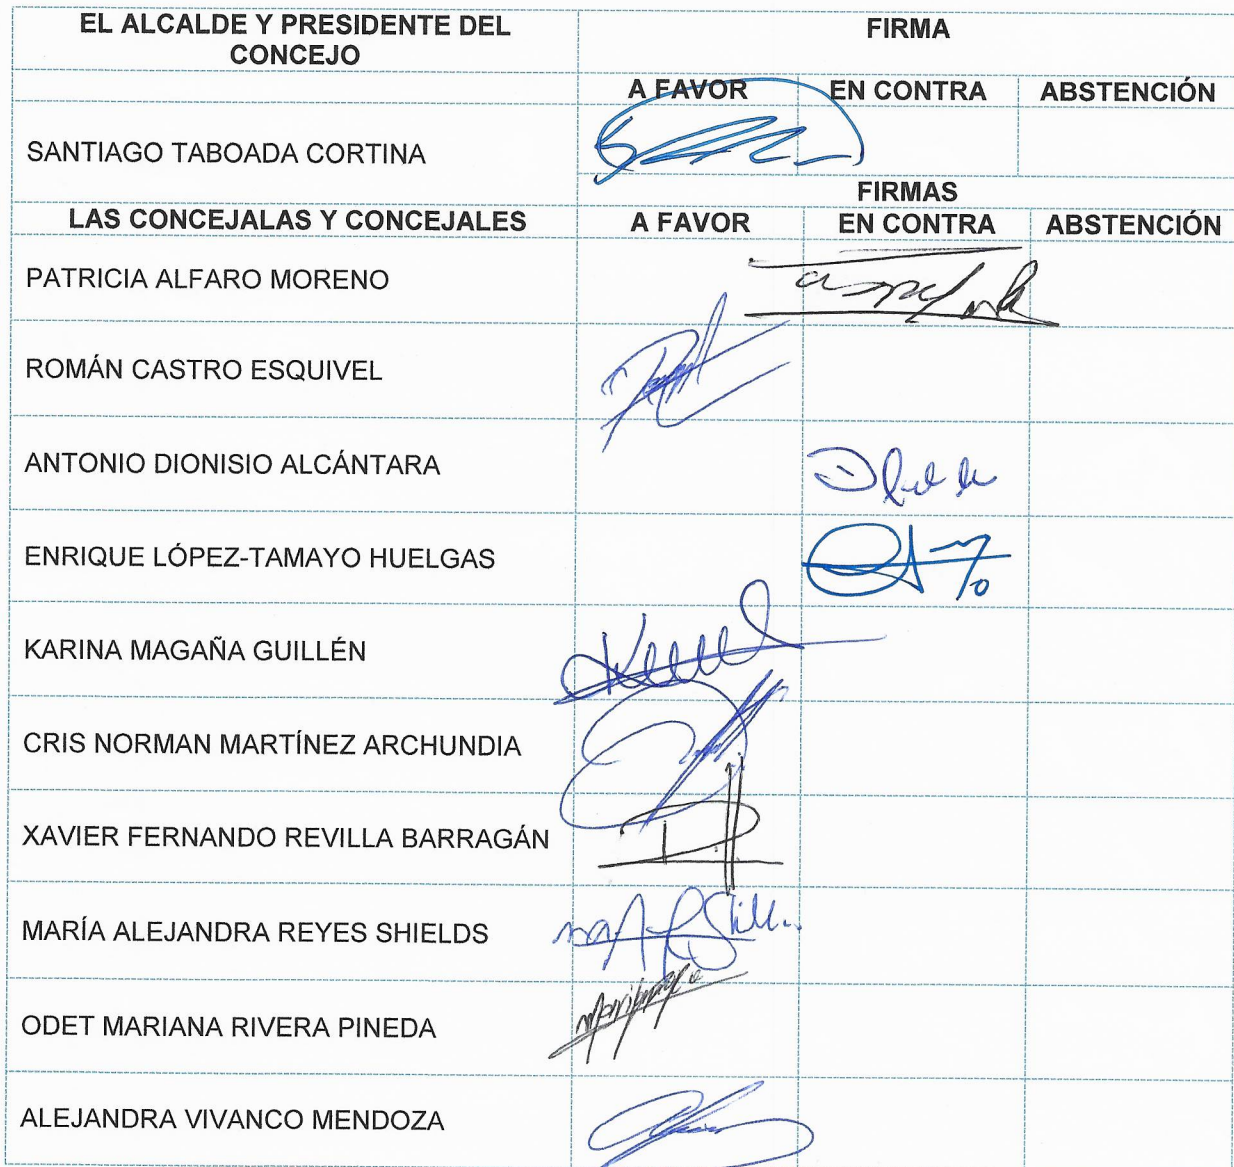 EL ALCALDE Y PRESIDENTE DEL
CONCEJO
FIRMA
A FAVOR EN CONTRA ABSTENCIÓN
SANTIAGO TABOADA CORTINA
FIRMAS
LAS CONCEJALAS Y CONCEJALES A FAVOR EN CONTRA ABSTENCIÓN
PATRICIA ALFARO MORENO
ROMÁN CASTRO ESQUIVEL
ANTONIO DIONISIO ALCÁNTARA
ENRIQUE LÓPEZ-TAMAYO HUELGAS
KARINA MAGAÑA GUILLÉN
CRIS NORMAN MARTÍNEZ ARCHUNDIA
XAVIER FERNANDO REVILLA BARRAGÁN
MARÍA ALEJANDRA REYES SHIELDS
ODET MARIANA RIVERA PINEDA
ALEJANDRA VIVANCO MENDOZA